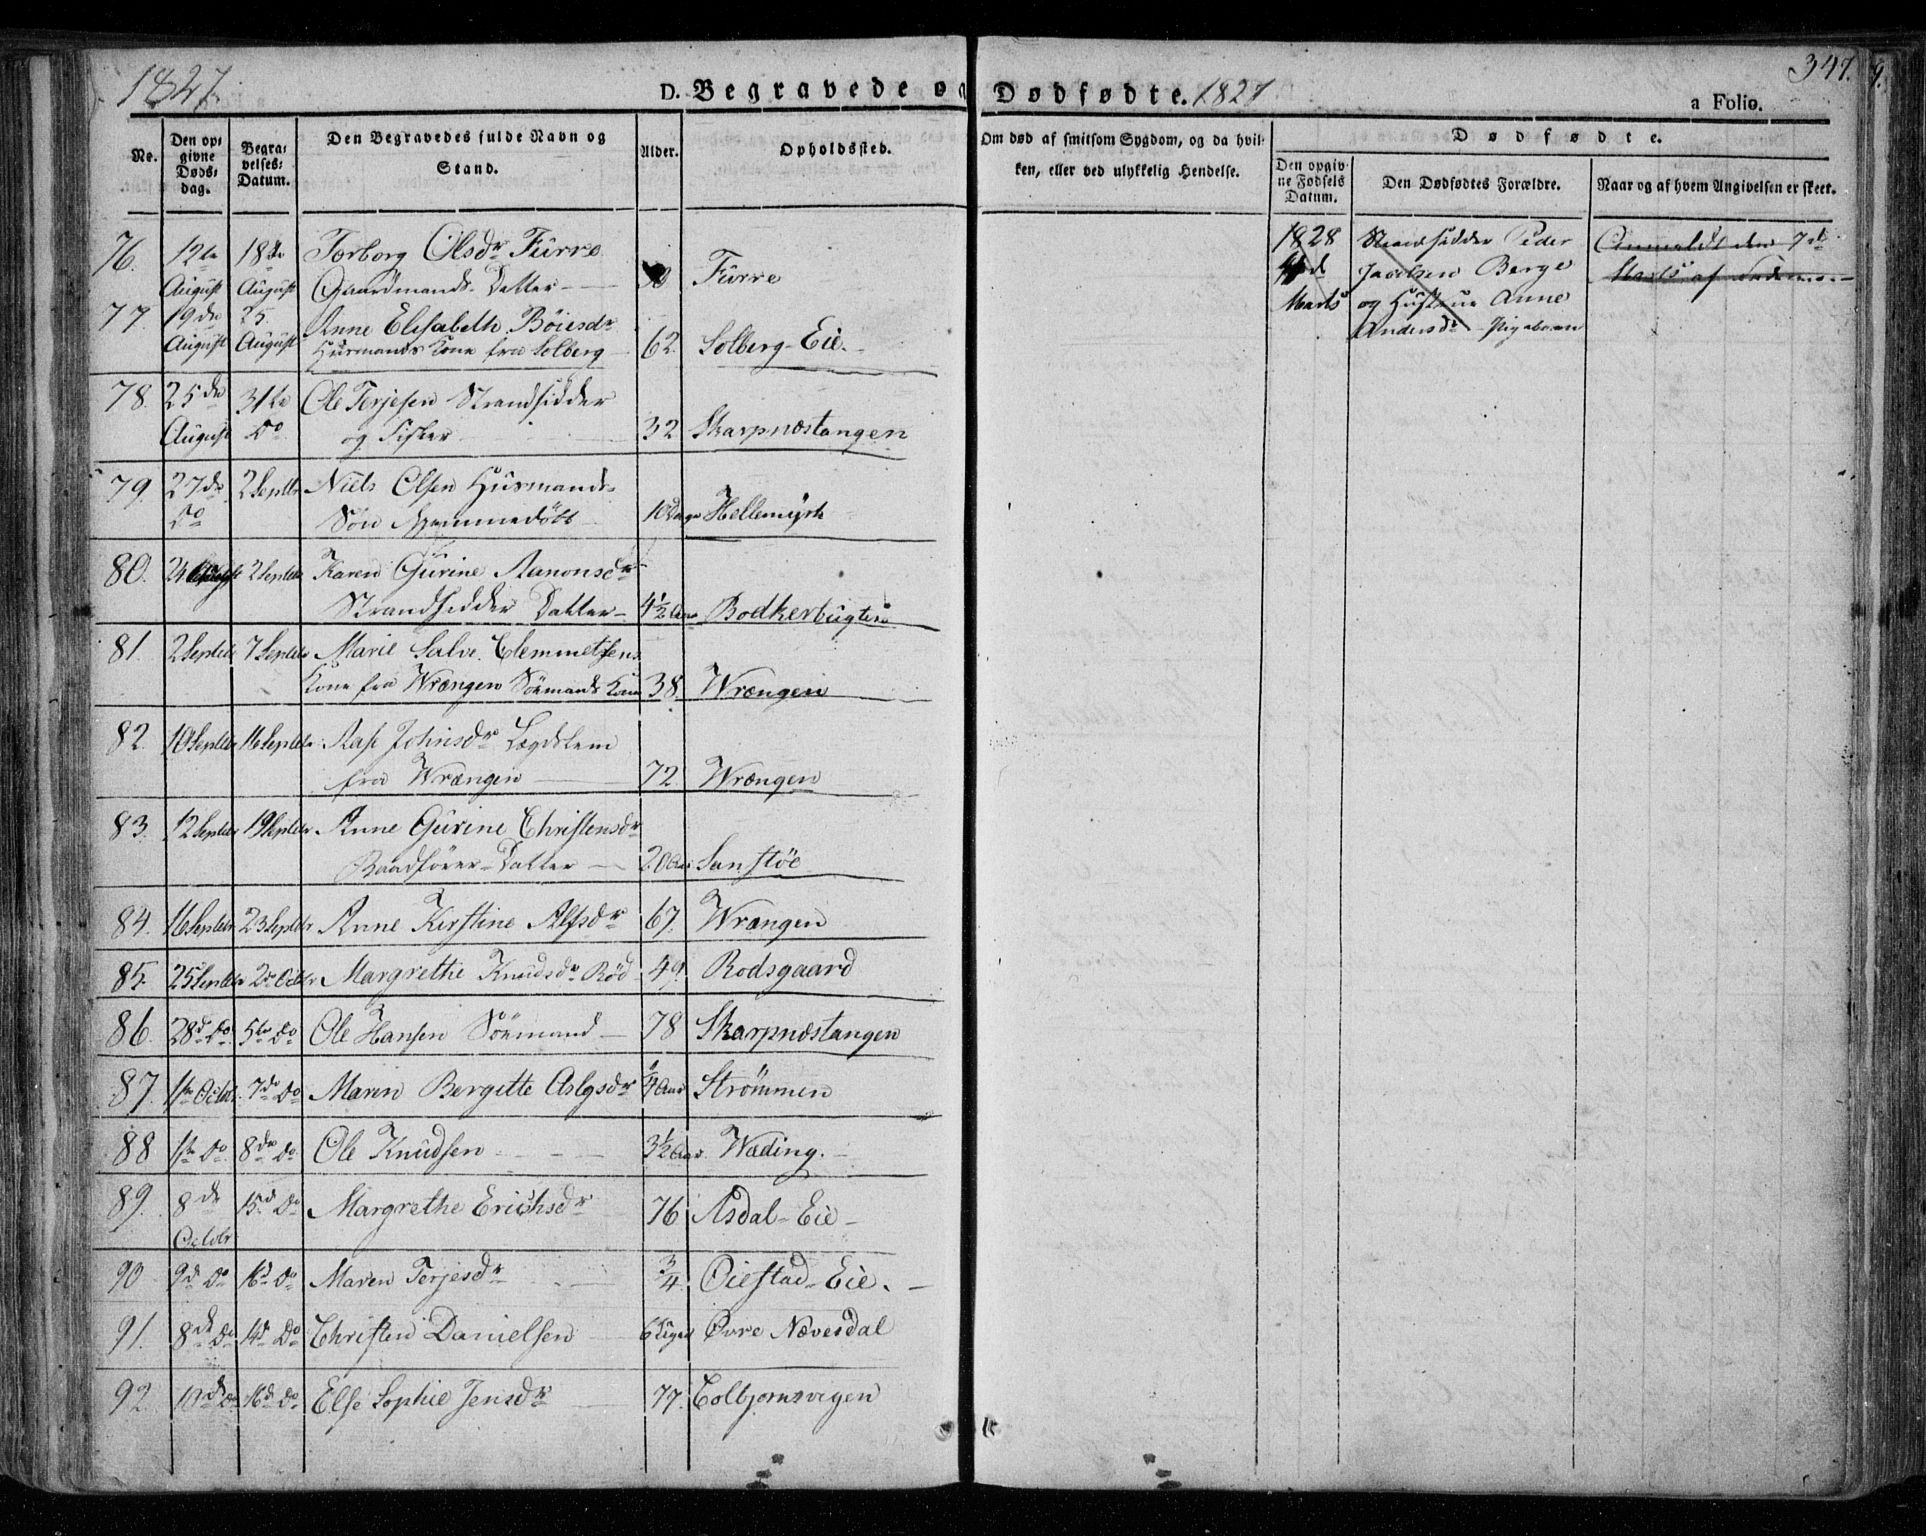 1827.
D. Begravede og Dødfødte. 1827
347.
a Folio.
No.
Den op-
givne
Døds-
dag.
Begra-
velses-
Datum.
Den Begravedes fulde Navn og
Stand.
Alder.
Opholdssted.
Om død af smitsom Sygdom, og da hvil-
ken, eller ved ulykkelig Hendelse.
Dødfødte.
Den opgiv-
ne Fødsels
Datum.
Den Dødfødtes Forældre.
Naar og af hvem Angivelsen er skeet.
76. 12te 18de Torborg Olsdr Furre
August August Gaardmands Datter Furre
77. 19de 25 Anne Elisabeth Böiesdr
August August Huusmands Kone fra Solberg 62. Solberg-Eie.
78. 25de 31te Ole Terjesen Strandsidder
August Do og Fisker 32 Skarpnæstangen
79. 27de 2 Septbr Niels Olsen Huusmands
Do Søn hjemmedöbt 10 Dage Hellemyrh
80. 2 Septbr Karen Gurine Aanonsdr
Strandsidder Datter 4 1/2 Aar Bodkerbugten
81. 2 Septbr 7 Septbr Marie Salve Clemmetsens
Kone fra Wrængen Sömands Kone 38. Wrængen
82. 10 Septbr 16 Septbr Aase Johnsdr Lægdslem
fra Wrængen 72 Wrængen
83. 12 Septbr 19 Septbr Anne Gurine Christensdr
Datter 20 Aar Sanstöe
84. 16 Septbr 23 Septbr Anne Kirstine Alfsdr 67. Wrængen
85. 25 Septbr 2de Octbr Margrethe Knudsdr Röd 49. Rodsgaard
86. 28de Do 5te Do Ole Hansen Sömand 78 Skarpnæstangen
87. 1ste Octbr. 7de Do Maren Bergitte Aslgsdr Aar Strömmen
88 1ste Do 8de Do Ole Knudsen 3 1/2 Aar. Wading.
89. 8de 15de Do Margrethe Erichsdr 76 Asdal-Eie
Octbr
90 9de Do 16de Do Maren Terjesdr 3/4 Oiestad-Eie.
91. 8de Do 14de Do Christen Danielsen 6 Uger Øvre Nævesdal
92. 10de Do 16de Do Else Sophie Jensdr 77. Colbjornsvigen
1828 Strandsidder Peder Anmeldt den 7de
4de Jacobsen Berge Marts af Faderen
Marts og Hustrue Anne
Andersdr Pigebarn